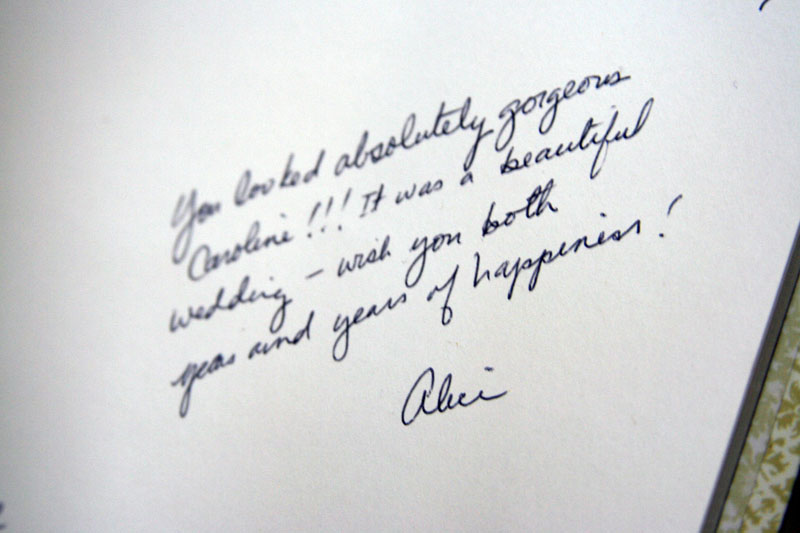 You looked absolutely gorgeous
Caroline!!! It was a beautiful
wedding – wish you both
years and years of happiness!
Alice